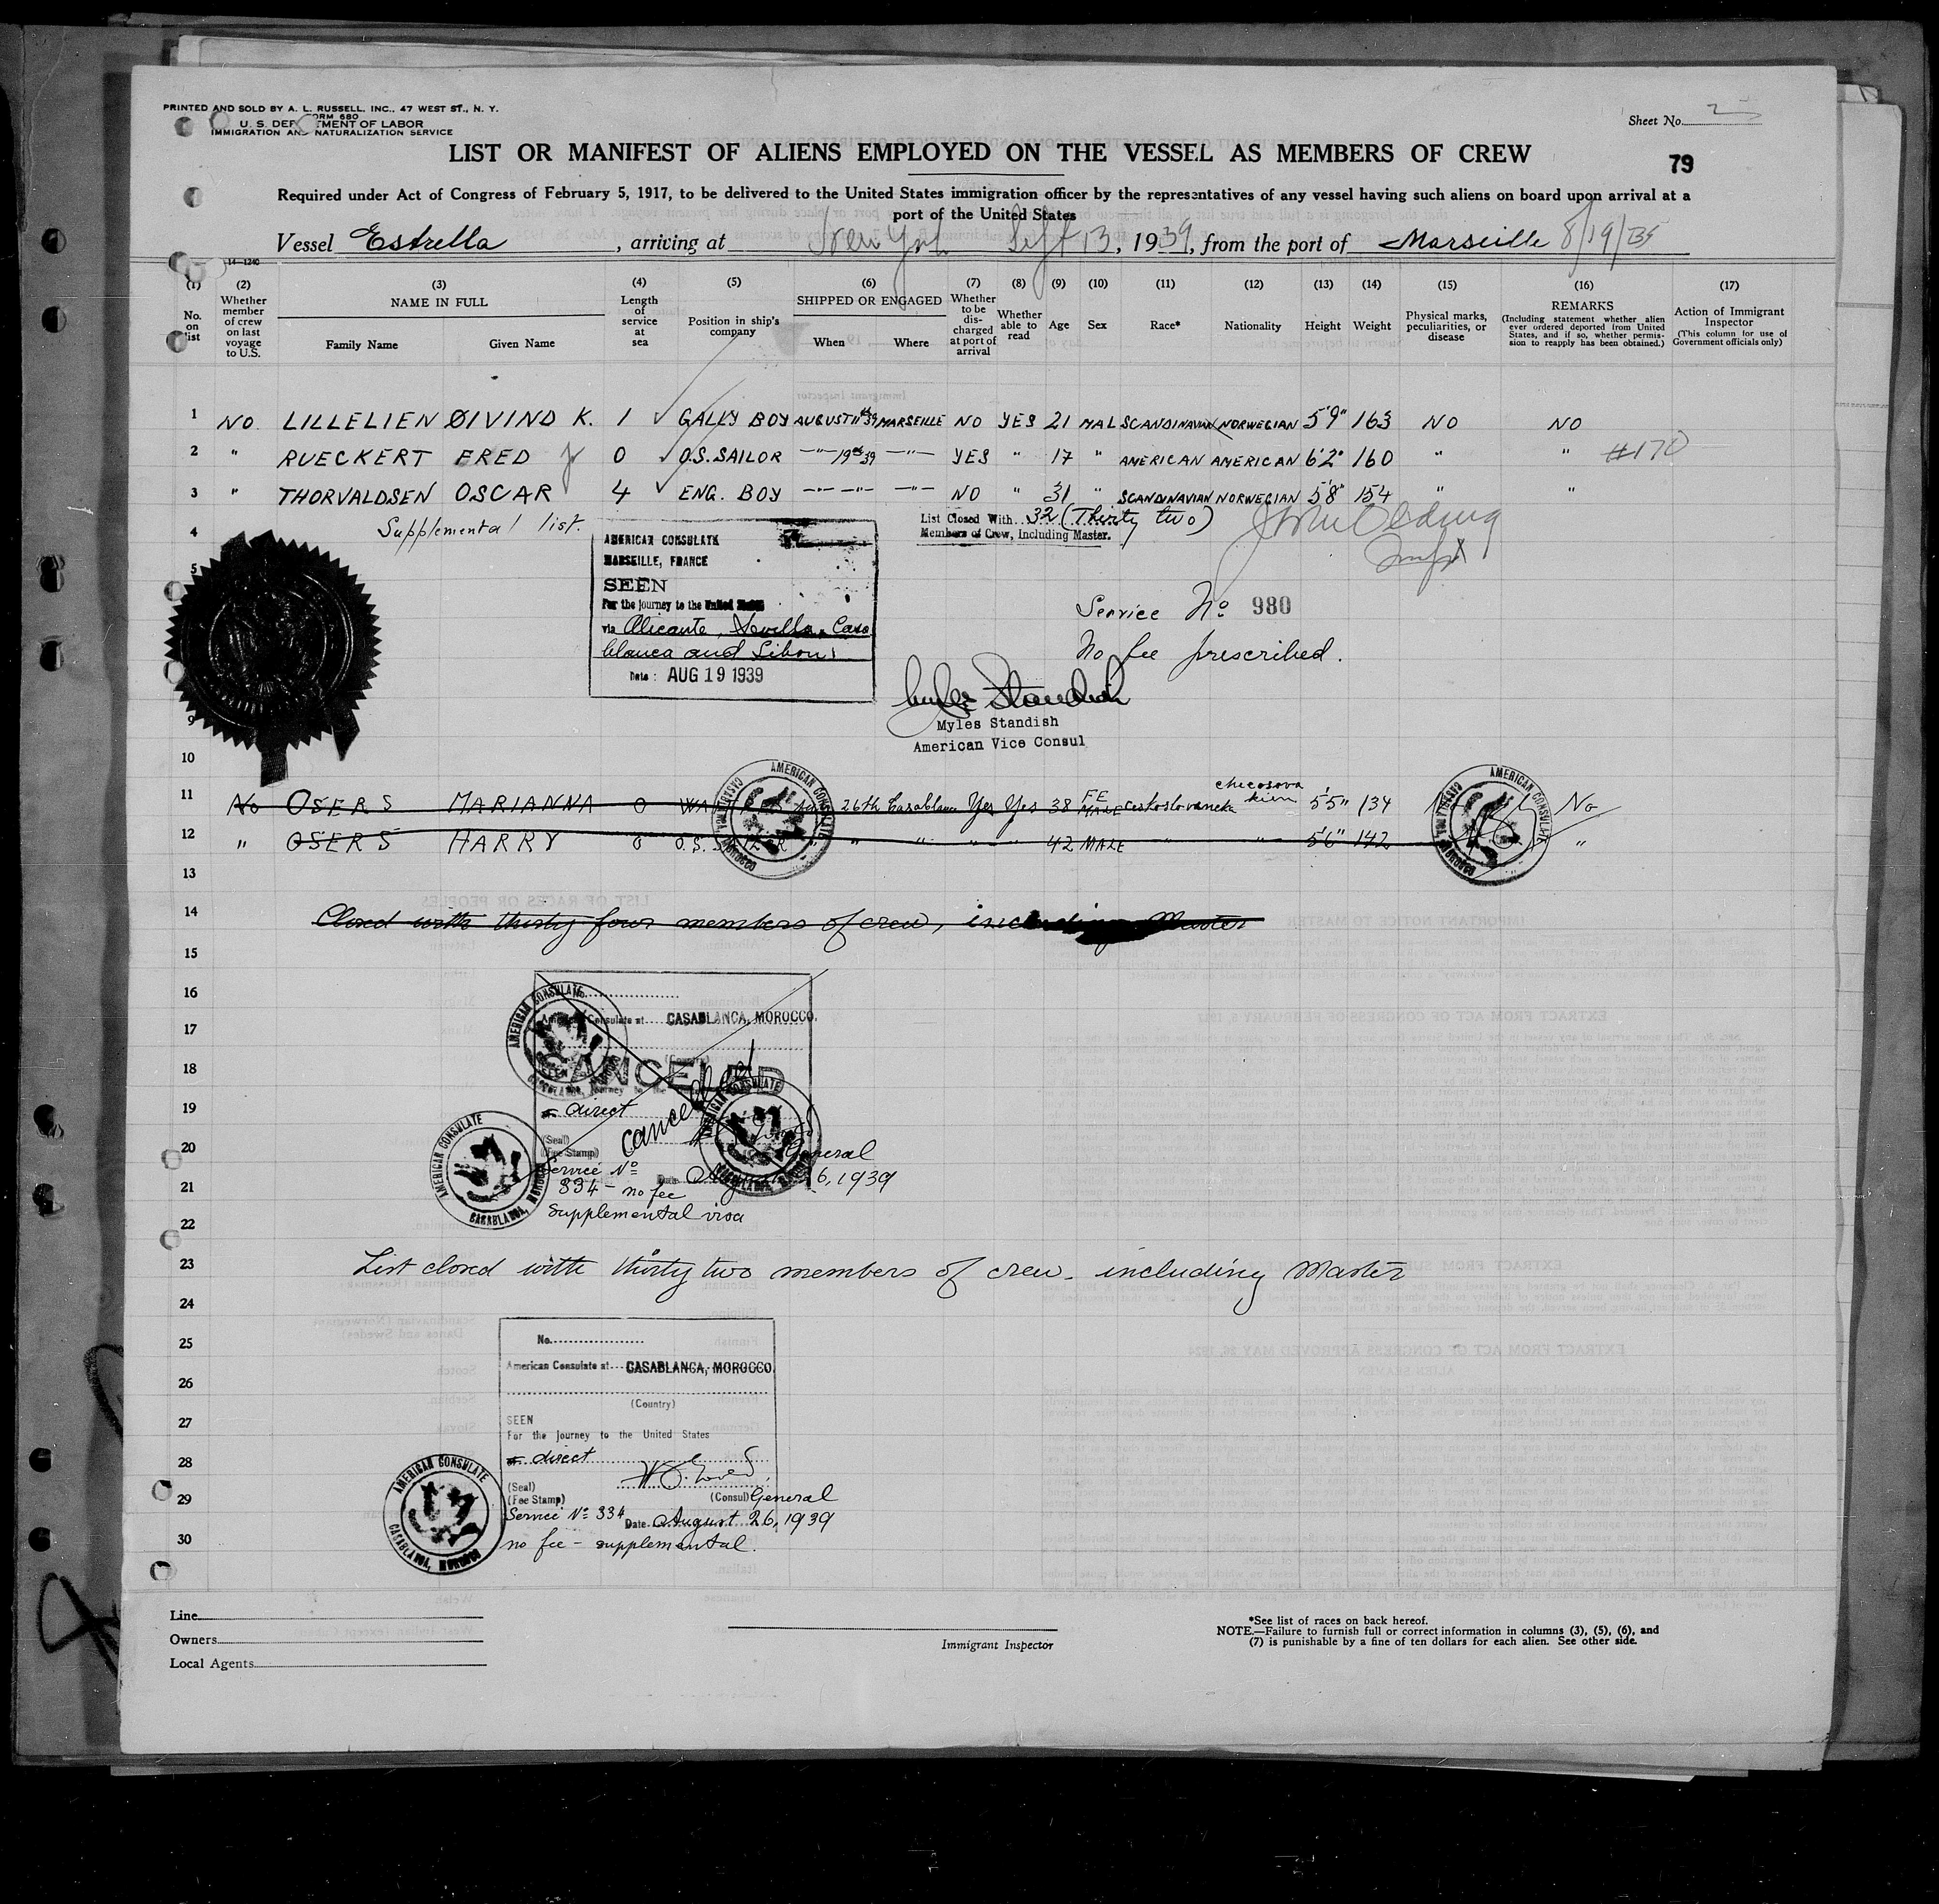 PRINTED AND SOLD BY A. L. RUSSELL, INC., 47 WEST ST., N. Y.
FORM 680
U. S. DEP TMENT OF LABOR
IMMIGRATION AND NATURALIZATION SERVICE
Sheet No. 2
LIST OR MANIFEST OF ALIENS EMPLOYED ON THE VESSEL AS MEMBERS OF CREW
79
Required under Act of Congress of February 5, 1917, to be delivered to the United States immigration officer by the representatives of any vessel having such aliens on board upon arrival at a
port of the United States
Vessel Estrella, arriving at New York Sept 13, 1939, from the port of Marseille 8/19/
14-1240
(1) (2) (3) (4) (5) (6) (7) (8) (9) (10) (11) (12) (13) (14) (15) (16) (17)
No. on list
Whether member of crew on last voyage to U.S.
NAME IN FULL
Family Name Given Name
Length of service at sea
Position in ship's company
SHIPPED OR ENGAGED
When Where
Whether to be discharged at port of arrival
Whether able to read
Age
Sex
Race*
Nationality
Height
Weight
Physical marks, peculiarities, or disease
REMARKS
(Including statement whether alien ever ordered deported from United States, and if so, whether permission to reapply has been obtained.)
Action of Immigrant Inspector
(This column for use of Government officials only)
1 NO LILLELIEN ØIVIND K. 1 GALLY BOY AUGUST 11th 39 MARSEILLE NO YES 21 MAL SCANDINAVIAN NORWEGIAN 5'9" 163 NO NO
2 " RUECKERT FRED Jr 0 O.S. SAILOR -"- 19th 39 -"- YES " 17 " AMERICAN AMERICAN 6'2" 160 " " #170
3 " THORVALDSEN OSCAR 4 ENG. BOY -"- -"- -"- NO " 31 " SCANDINAVIAN NORWEGIAN 5'8" 154 " "
4 Supplemental list.
List Closed With 32 (Thirty two)
Members of Crew, Including Master.
5
AMERICAN CONSULATE
MARSEILLE, FRANCE
SEEN
For the journey to the United States
via Alicante, Sevilla, Casa
blanca and Lisbon
Date: AUG 19 1939
Service No 980
No fee prescribed.
Myles Standish
Myles Standish
American Vice Consul
9
10
11 No OSERS MARIANNA 0 26th Casablanca Yes Yes 38 FEMALE checosova kien 5'5" 134 No
12 " OSERS HARRY 0 O.S. SAILOR " " " " 42 MALE " " 5'6" 142 "
AMERICAN CONSULATE CASABLANCA, MOROCCO
AMERICAN CONSULATE CASABLANCA, MOROCCO
13
14 Closed with thirty four members of crew, including Master
15
16 No.
17 American Consulate at CASABLANCA, MOROCCO.
(Country)
18 CANCELLED
SEEN
Journey to the
19 direct
cancelled
20 (Seal)
(Fee Stamp)
General
Service No
21 834 - no fee
Date August 26, 1939
22 supplemental visa
AMERICAN CONSULATE CASABLANCA, MOROCCO
AMERICAN CONSULATE CASABLANCA, MOROCCO
AMERICAN CONSULATE CASABLANCA, MOROCCO
23 List closed with thirty two members of crew - including Master
24
25 No.
American Consulate at CASABLANCA, MOROCCO.
26
(Country)
27 SEEN
For the Journey to the United States
28 direct
(Seal)
29 (Fee Stamp) (Consul) General
Service No 334 Date August 26, 1939
30 no fee - supplemental.
AMERICAN CONSULATE CASABLANCA, MOROCCO
Line
Owners
Local Agents
Immigrant Inspector
*See list of races on back hereof.
NOTE.—Failure to furnish full or correct information in columns (3), (5), (6), and
(7) is punishable by a fine of ten dollars for each alien. See other side.